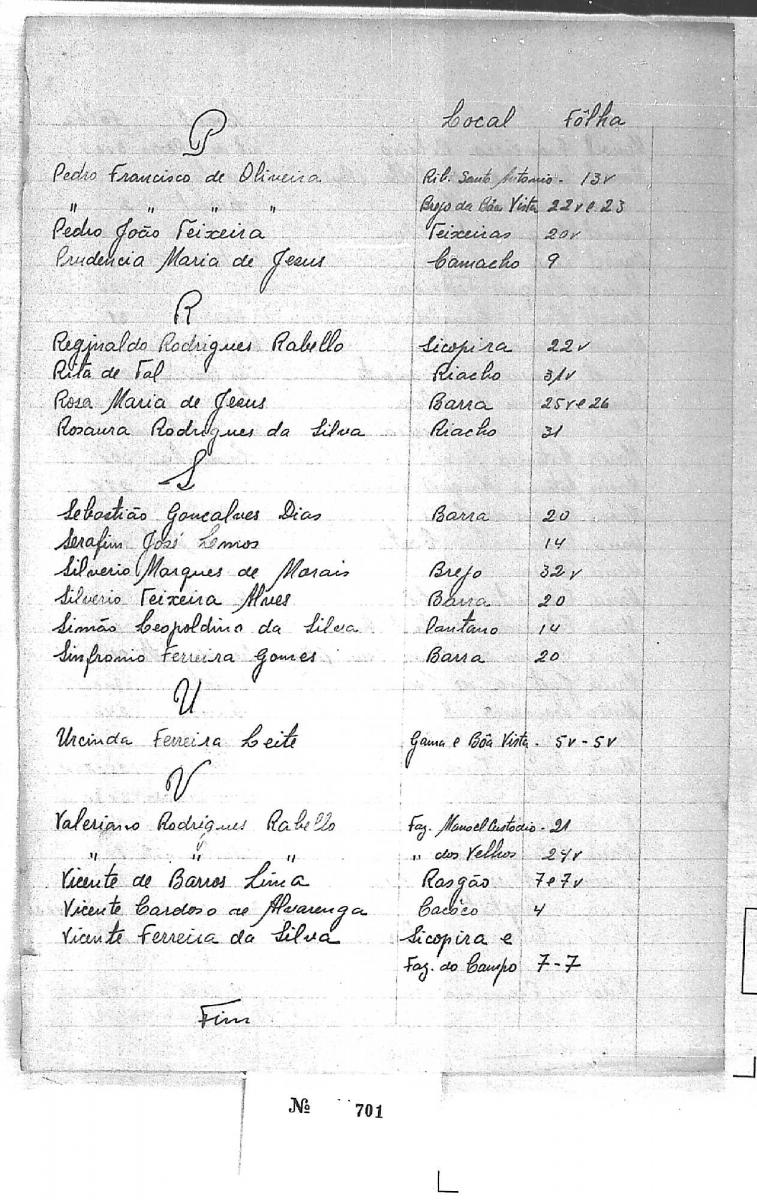 P Local Fôlha
Pedro Francisco de Oliveira Rib. Santo Antonio - 13v
" " " " Brejo da Bôa Vista 22v e 23
Pedro João Teixeira Teixeiras 20v
Prudencia Maria de Jesus Camacho 9
R
Reginaldo Rodrigues Rabello Sicopira 22v
Rita de Tal Riacho 31v
Rosa Maria de Jesus Barra 25v e 26
Rosaura Rodrigues da Silva Riacho 31
S
Sebastião Goncalves Dias Barra 20
Serafim José Lemos 14
Silverio Marques de Morais Brejo 32v
Silverio Teixeira Alves Barra 20
Simão Leopoldino da Silva Pantano 14
Sinfronio Ferreira Gomes Barra 20
U
Urcinda Ferreira Leite Gama e Bôa Vista - 5v - 5v
V
Valeriano Rodrigues Rabello Faz. Manoel Custodio - 21
" " " " dos Velhos 24v
Vicente de Barros Lima Rasgão 7 e 7v
Vicente Cardoso de Alvarenga Cacôco 4
Vicente Ferreira da Silva Sicopira e
Faz. do Campo 7 - 7
Fim
№ 701